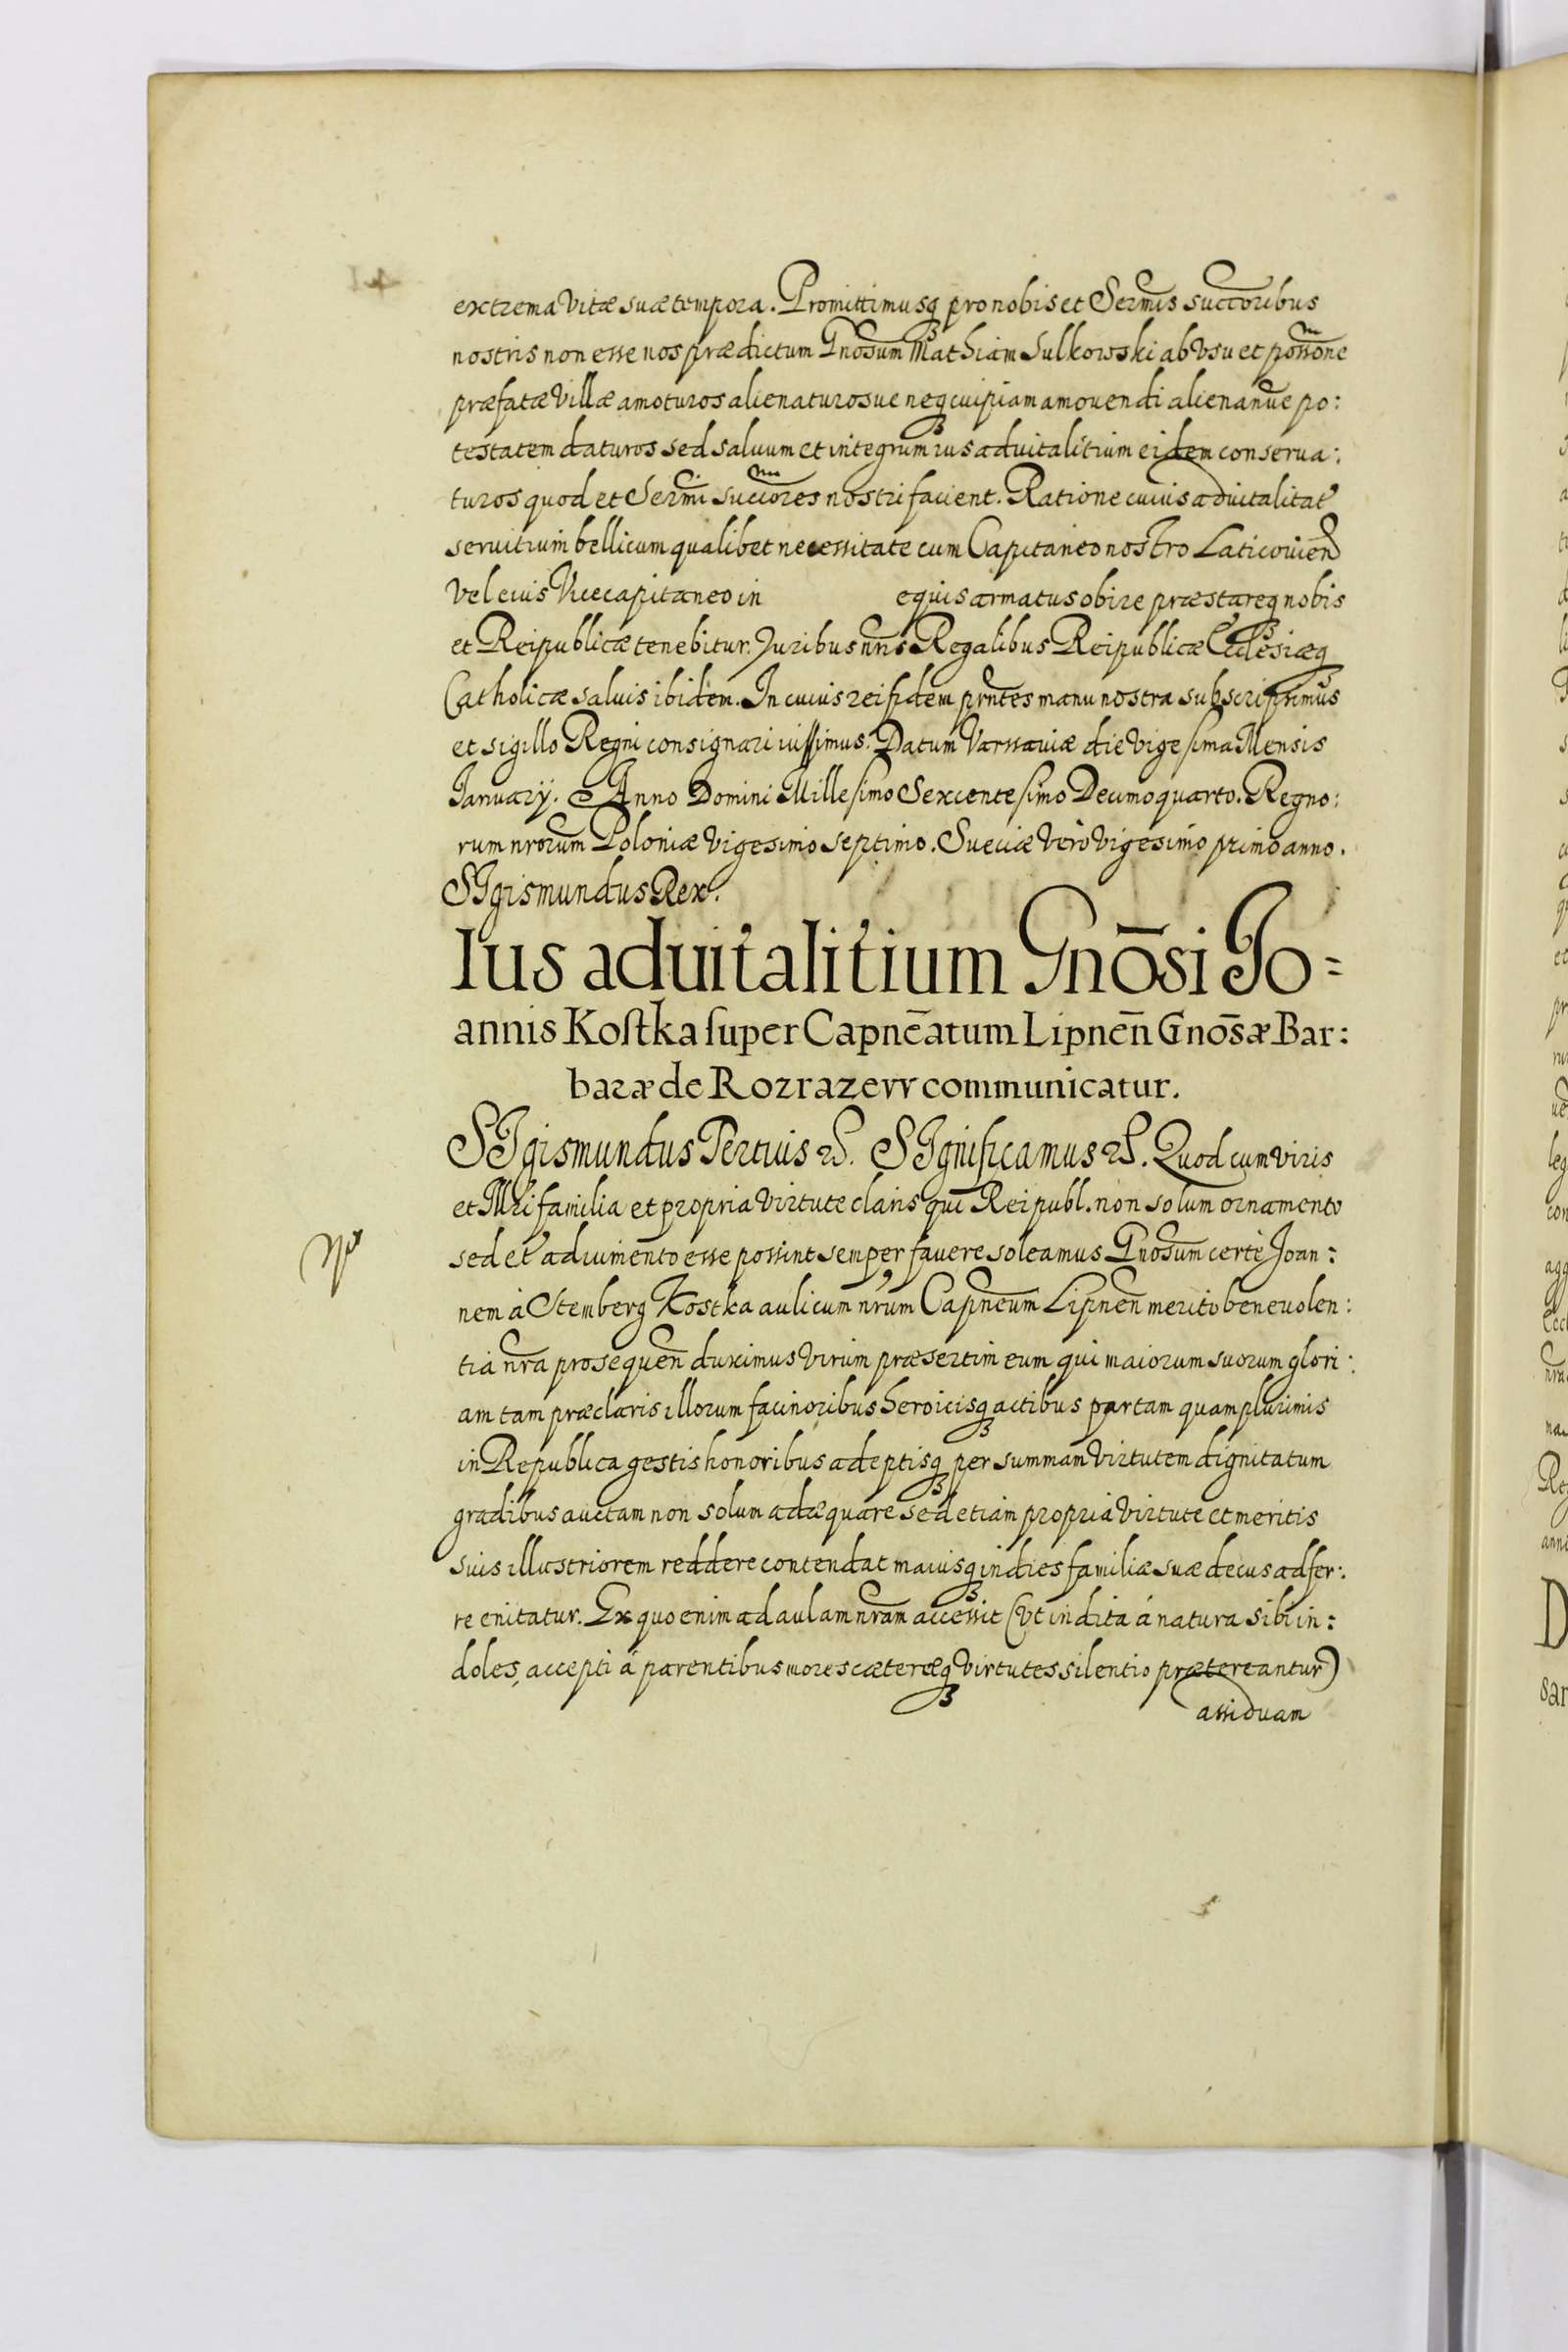 extrema vitæ suæ tempora. Promittimusq₃ pro nobis et Sermis succoribus
nostris non esse nos prædictum Gnosum Mathiam Sulkowski ab vsu et possone
præfatæ villæ amoturos alienaturosue neq₃ cuipiam amouendi alienandiue po:
testatem daturos sed saluum et integrum ius aduitalitium eidem conserua:
turos quod et Sermi succores nostri facient. Ratione cuius aduitalitat
seruitium bellicum qualibet necessitate cum Capitaneo nostro Laticouien
vel eius Vicecapitaneo in equis armatus obire præstareq₃ nobis
et Reipublicæ tenebitur. Juribus nris Regalibus Reipublicæ Ecclesiæq₃
Catholicæ saluis ibidem. In cuius rei fidem prntes manu nostra subscripsimus
et sigillo Regni consignari iussimus. Datum Varssauiæ die vigesima Mensis
Ianuarÿ. Anno Domini Millesimo Sexcentesimo Decimoquarto. Regno:
rum nrorum Poloniæ vigesimo septimo. Sueciæ vero vigesimo primo anno.
SIgismundus Rex.
Ius aduitalitium Gnōsi Jo=
annis Kostka super Capnēatum Lipnen̄ Gnōsæ Bar:
baræ de Rozrazew communicatur.
SIgismundus Tertius &. SIgnificamus &. Quod cum viris
et Illri familia et propria virtute claris qui Reipubl. non solum ornamento
sed et adiumento esse possint semper fauere soleamus Gnosum certè Joan:
nem à Stemberg Kostka aulicum nrum Capneum Lipnen merito beneuolen:
tia nra prosequen duximus virum præsertim eum qui maiorum suorum glori:
am tam præclaris illorum facinoribus heroicisq₃ actibus partam quam plurimis
in Republica gestis honoribus adeptisq₃ per summam virtutem dignitatum
gradibus auctam non solum adæquare sed etiam propria virtute et meritis
suis illustriorem reddere contendat maiusq₃ in dies familiæ suæ decus adfer:
re enitatur. Ex quo enim ad aulam nram accessit (vt indita á natura sibi in:
doles, accepti á parentibus mores cæteræq₃ virtutes silentio prætereantur)
assiduam